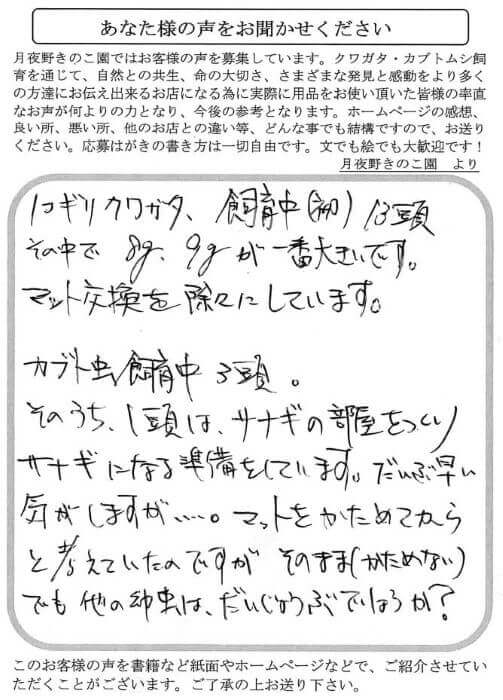 あなた様の声をお聞かせください
月夜野きのこ園ではお客様の声を募集しています。クワガタ・カブトムシ飼
育を通じて、自然との共生、命の大切さ、さまざまな発見と感動をより多く
の方達にお伝え出来るお店になる為に実際に用品をお使い頂いた皆様の率直
なお声が何よりの力となり、今後の参考となります。ホームページの感想、
良い所、悪い所、他のお店との違い等、どんな事でも結構ですので、お送り
ください。応募はがきの書き方は一切自由です。文でも絵でも大歓迎です!
月夜野きのこ園 より
ノコギリクワガタ、飼育中(初) 13頭
その中で 8g、9gが一番大きいです。
マット交換を除々にしています。
カブト虫飼育中 3頭。
そのうち、1頭は、サナギの部屋をつくり
サナギになる準備をしています。だいぶ早い
気がしますが……。マットをかためてから
と考えていたのですが そのまま(かためない)
でも他の幼虫は、だいじょうぶでしょうか?
このお客様の声を書籍など紙面やホームページなどで、ご紹介させてい
ただくことがございます。ご了承の上お送り下さい。